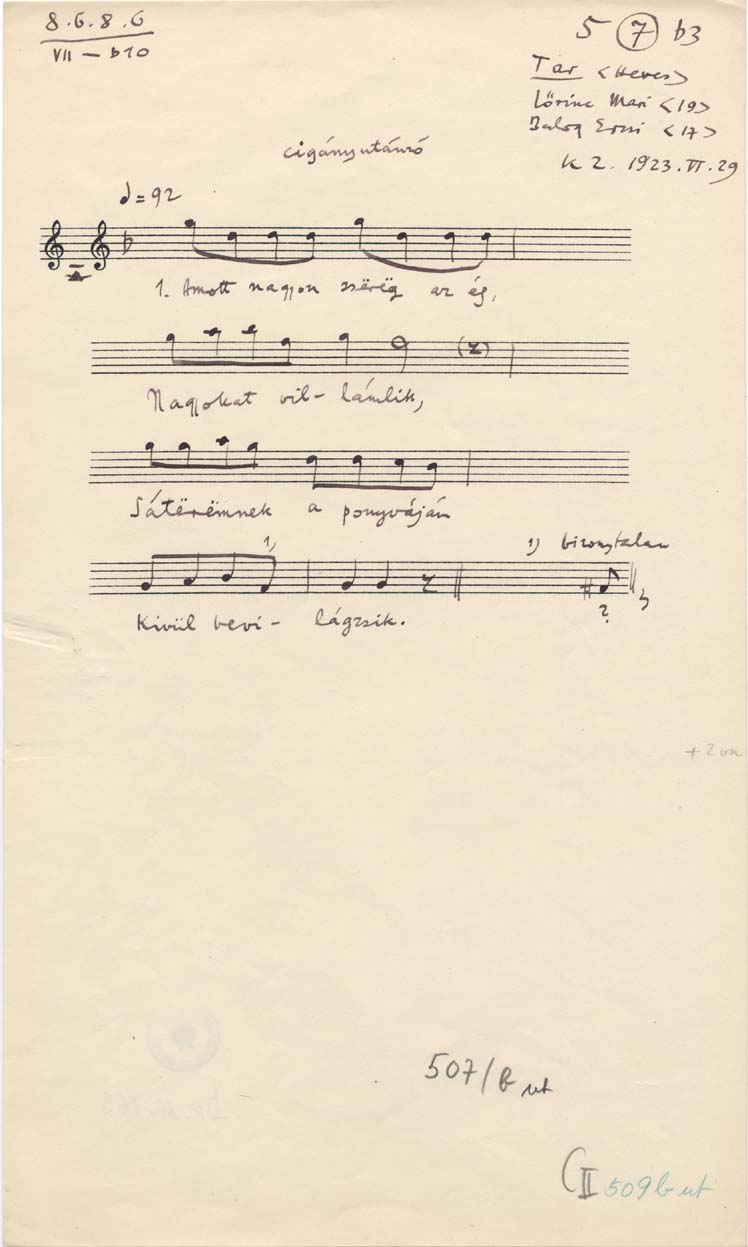 8.6.8.6
VII – b10
5 (7) b3
Tar <Heves>
Lőrinc Mari <19>
Balog Erzsi <17>
K 2. 1923. VI. 29
cigányutánzó
= 92
1. Amott nagyon szërëg az ég,
Nagyokat vil- lámlik,
Sátërëmnek a ponyváján
1) bizonytalan
1)
Kivül bevi- lágzsik.
?
+ 2 va
507/b ut
G II 509 b ut